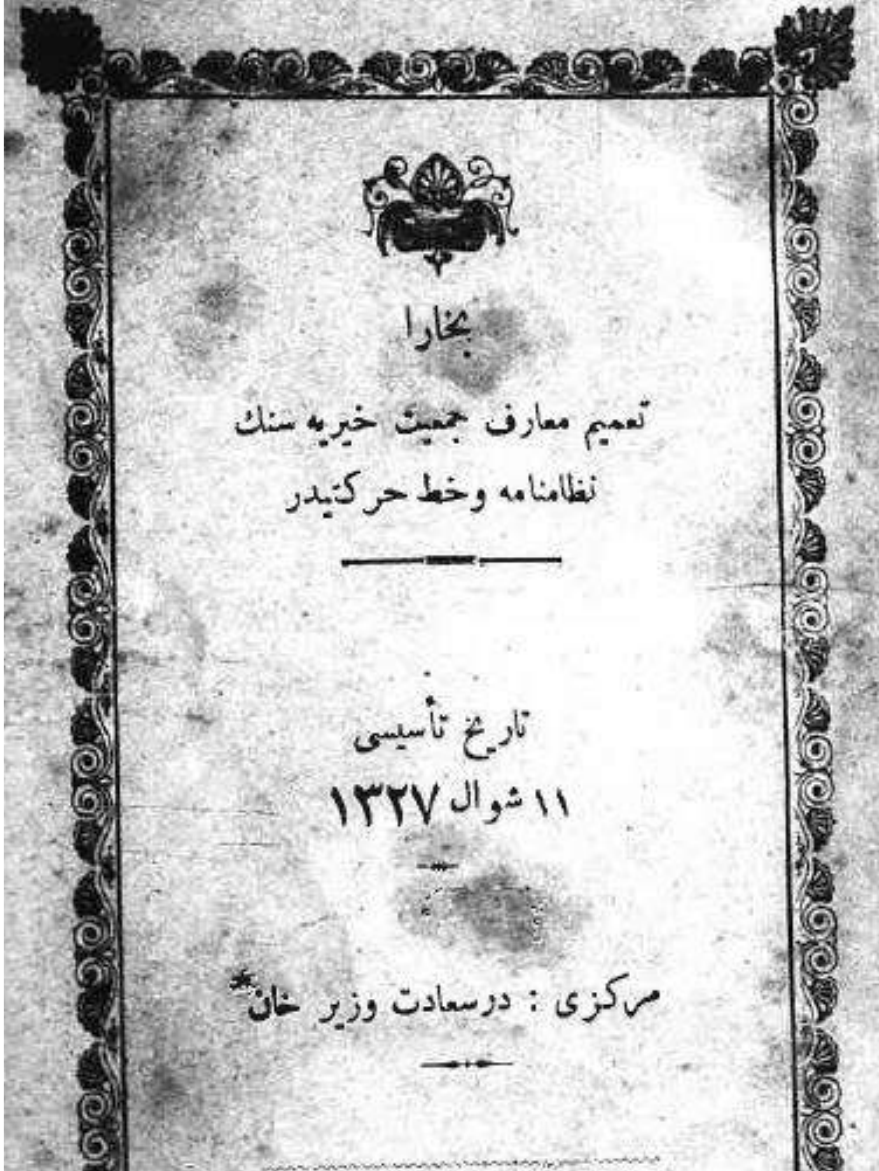 بخارا
تعميم معارف جمعيت خيريه سنك
نظامنامه و خط حركتيدر
تاريخ تأسيسى
١١ شوال ١٣٢٧
مركزى : درسعادت وزير خان